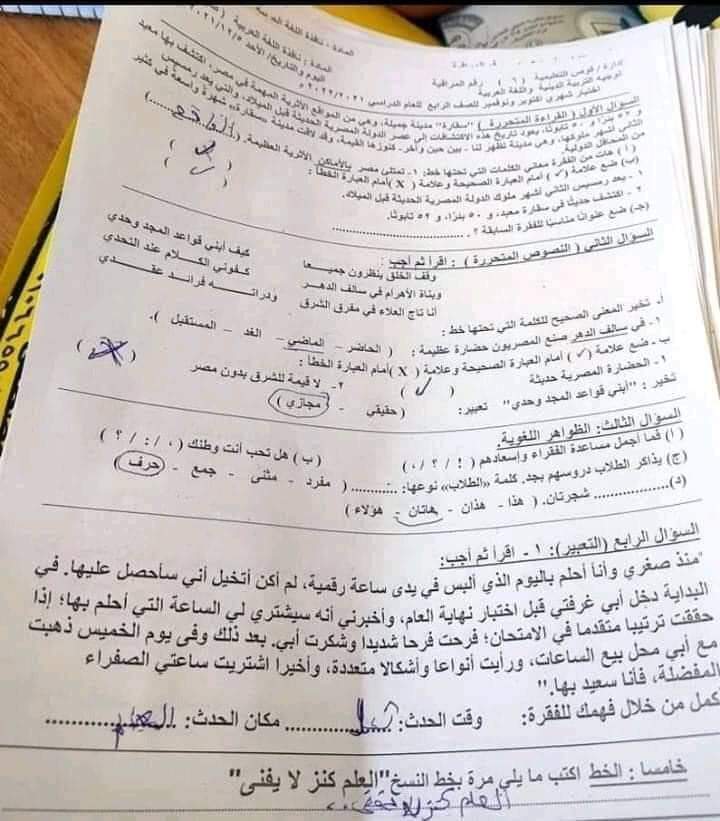 المادة : نافذة اللغة العربية
اليوم والتاريخ/ الأحد ٢٠٢١/١٢/٥
إدارة / قوص التعليمية (٦) رقم المراقبة
توجيه التربية الدينية واللغة العربية
اختبار شهري أكتوبر ونوفمبر للصف الرابع للعام الدراسي ٢٠٢٢/٢٠٢١
السؤال الأول ( القراءة المتحررة ) "سقارة" مدينة جميلة، وهي من المواقع الأثرية المهمة في مصر، اكتشف بها معبد
و ٥٢ بئرًا و ٥٠ تابوتا. يعود تاريخ هذه الاكتشافات إلى عصر الدولة المصرية الحديثة قبل الميلاد، والتي يعد رمسيس
الثاني أشهر ملوكها، وهي مدينة تظهر لنا - بين حين وآخر- كنوزها القيمة، وقد لاقت مدينة «سقارة» شهرة واسعة في كثير
من المحافل الدولية.
( أ ) هات من الفقرة معاني الكلمات التي تحتها خط: ١- تمتلئ مصر بالأماكن الأثرية العظيمة. (........)
(ب) ضع علامة (✓) أمام العبارة الصحيحة وعلامة ( X ) أمام العبارة الخطأ : ( ✓ )
١ - يعد رمسيس الثاني أشهر ملوك الدولة المصرية الحديثة قبل الميلاد. ( ✓ )
٢ - اكتشف حديث في سقارة معبد، و ٥٠ بئرًا، و ٥٢ تابوتا. ( )
(جـ) ضع عنوانًا مناسبًا للفقرة السابقة ؟ ........................
السؤال الثاني ( النصوص المتحررة ) : اقرأ ثم أجب :
وقف الخلق ينظرون جميعـا كيف أبني قواعد المجد وحدي
وبناة الأهرام في سالف الدهـر كـفوني الكـلام عند التحدي
أنا تاج العلاء في مفرق الشرق ودراتــه فرائـد عقـدي
أ. تخير المعنى الصحيح للكلمة التي تحتها خط :
١- في سالف الدهر صنع المصريون حضارة عظيمة : ( الحاضر – الماضي – الغد – المستقبل ).
ب - ضع علامة (✓) أمام العبارة الصحيحة وعلامة ( X ) أمام العبارة الخطأ :
١- الحضارة المصرية حديثة ( ✓ ) ٢- لا قيمة للشرق بدون مصر ( X )
تخير : "أبني قواعد المجد وحدي" تعبير: ( حقيقي - مجازي )
السؤال الثالث: الظواهر اللغوية.
( أ ) فما أجمل مساعدة الفقراء وإسعادهم ( ! / ؟ / ، ) ( ب ) هل تحب أنت وطنك ( ، / : / ؟ )
(ج) يذاكر الطلاب دروسهم بجد. كلمة «الطلاب» نوعها: ........... ( مفرد - مثنى - جمع - حرف )
(د)................ شجرتان. ( هذا - هذان - هاتان - هؤلاء )
السؤال الرابع (التعبير): ١ - اقرأ ثم أجب:
"منذ صغري وأنا أحلم باليوم الذي ألبس في يدى ساعة رقمية، لم أكن أتخيل أني سأحصل عليها. في
البداية دخل أبي غرفتي قبل اختبار نهاية العام، وأخبرني أنه سيشتري لي الساعة التي أحلم بها؛ إذا
حققت ترتيبا متقدما في الامتحان؛ فرحت فرحا شديدا وشكرت أبي. بعد ذلك وفى يوم الخميس ذهبت
مع أبي محل بيع الساعات، ورأيت أنواعا وأشكالا متعددة، وأخيرا اشتريت ساعتي الصفراء
المفضلة، فأنا سعيد بها."
كمل من خلال فهمك للفقرة: وقت الحدث: ................ مكان الحدث: ................
خامسا : الخط اكتب ما يلي مرة بخط النسخ "العلم كنز لا يفنى"